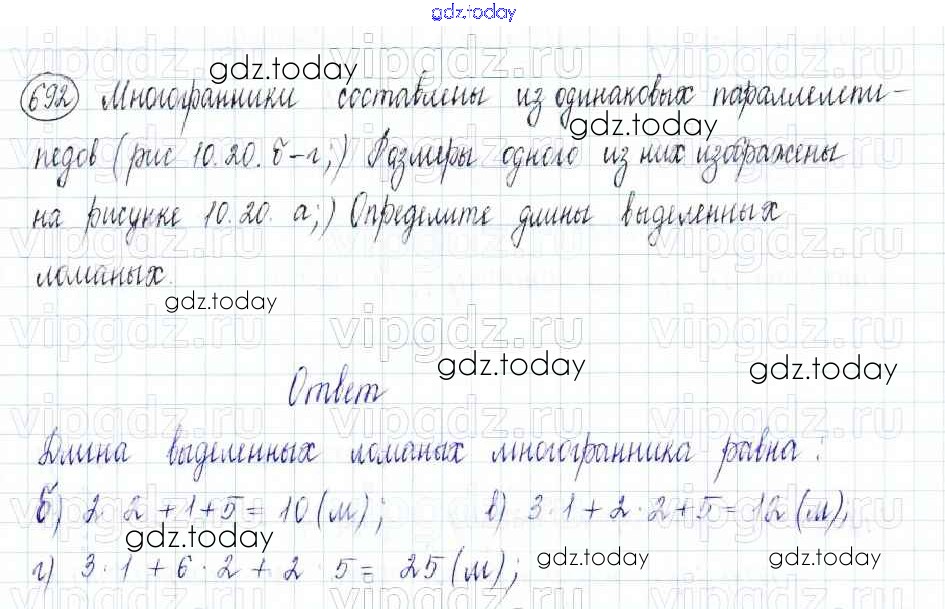 gdz.today
gdz.today
692 Многогранники составлены из одинаковых параллелепи-
gdz.today
педов (рис 10.20. б-г;) Размеры одного из них изображены
на рисунке 10.20. а;) Определите длины выделенных
ломаных.
gdz.today
gdz.today
gdz.today
Ответ
Длина выделенных ломаных многогранника равна:
б) 2·2+1+5=10(м); в) 3·1+2·2+5=12(м),
gdz.today
gdz.today
gdz.today
г) 3·1+6·2+2·5=25(м);
vipgdz.ru